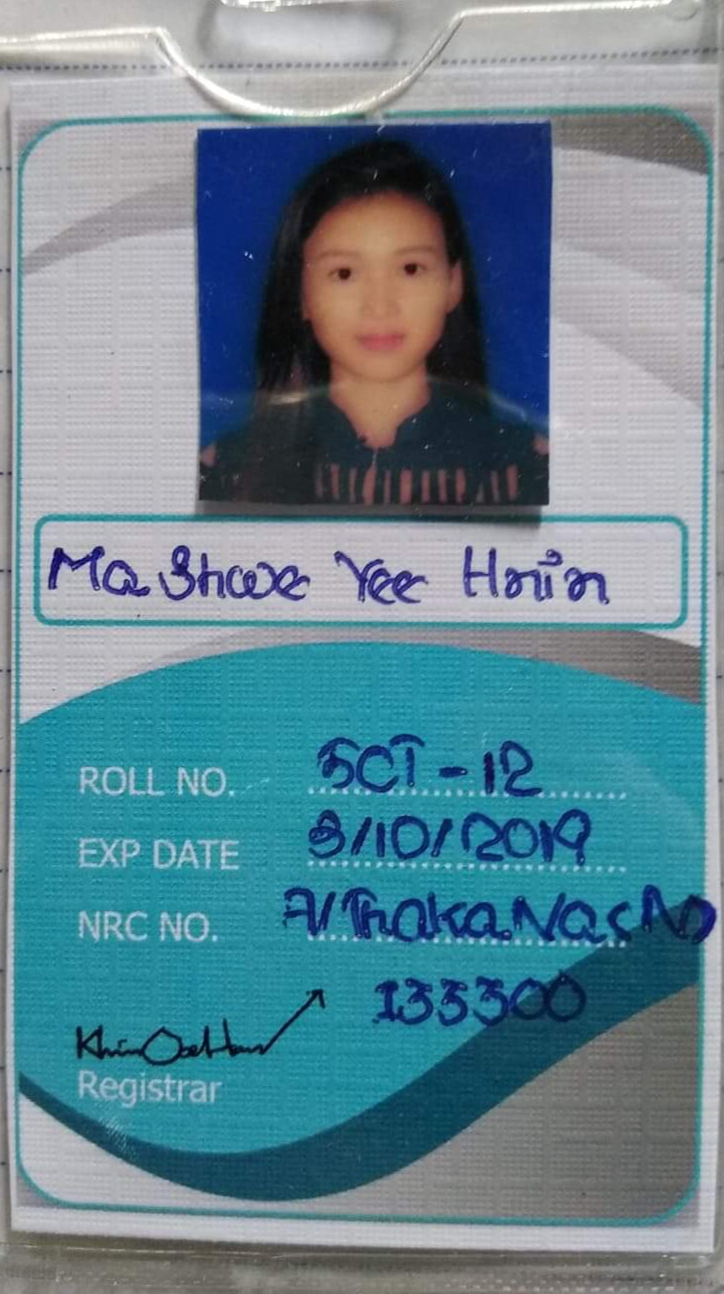 Ma Shwe Yee Hnin
ROLL NO. 5CT-12
EXP DATE 3/10/2019
NRC NO. 7/ThaKaNa(N)
133300
Registrar